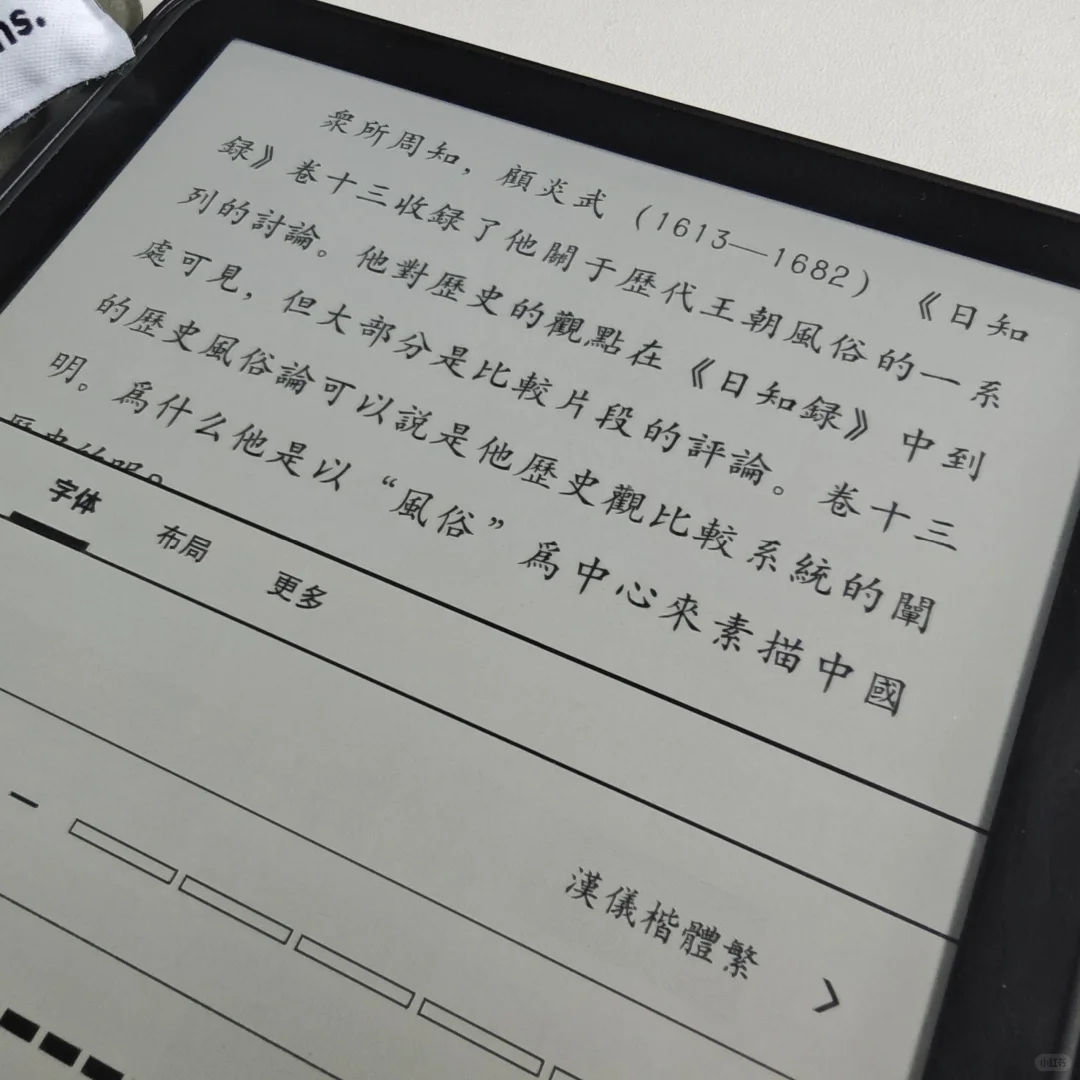 ns.
衆所周知，顧炎武（1613—1682）《日知
録》卷十三收録了他關于歷代王朝風俗的一系
列的討論。他對歷史的觀點在《日知録》中到
處可見，但大部分是比較片段的評論。卷十三
的歷史風俗論可以説是他歷史觀比較系統的闡
明。爲什么他是以“風俗”爲中心來素描中國
字体
布局
更多
漢儀楷體繁
小红书